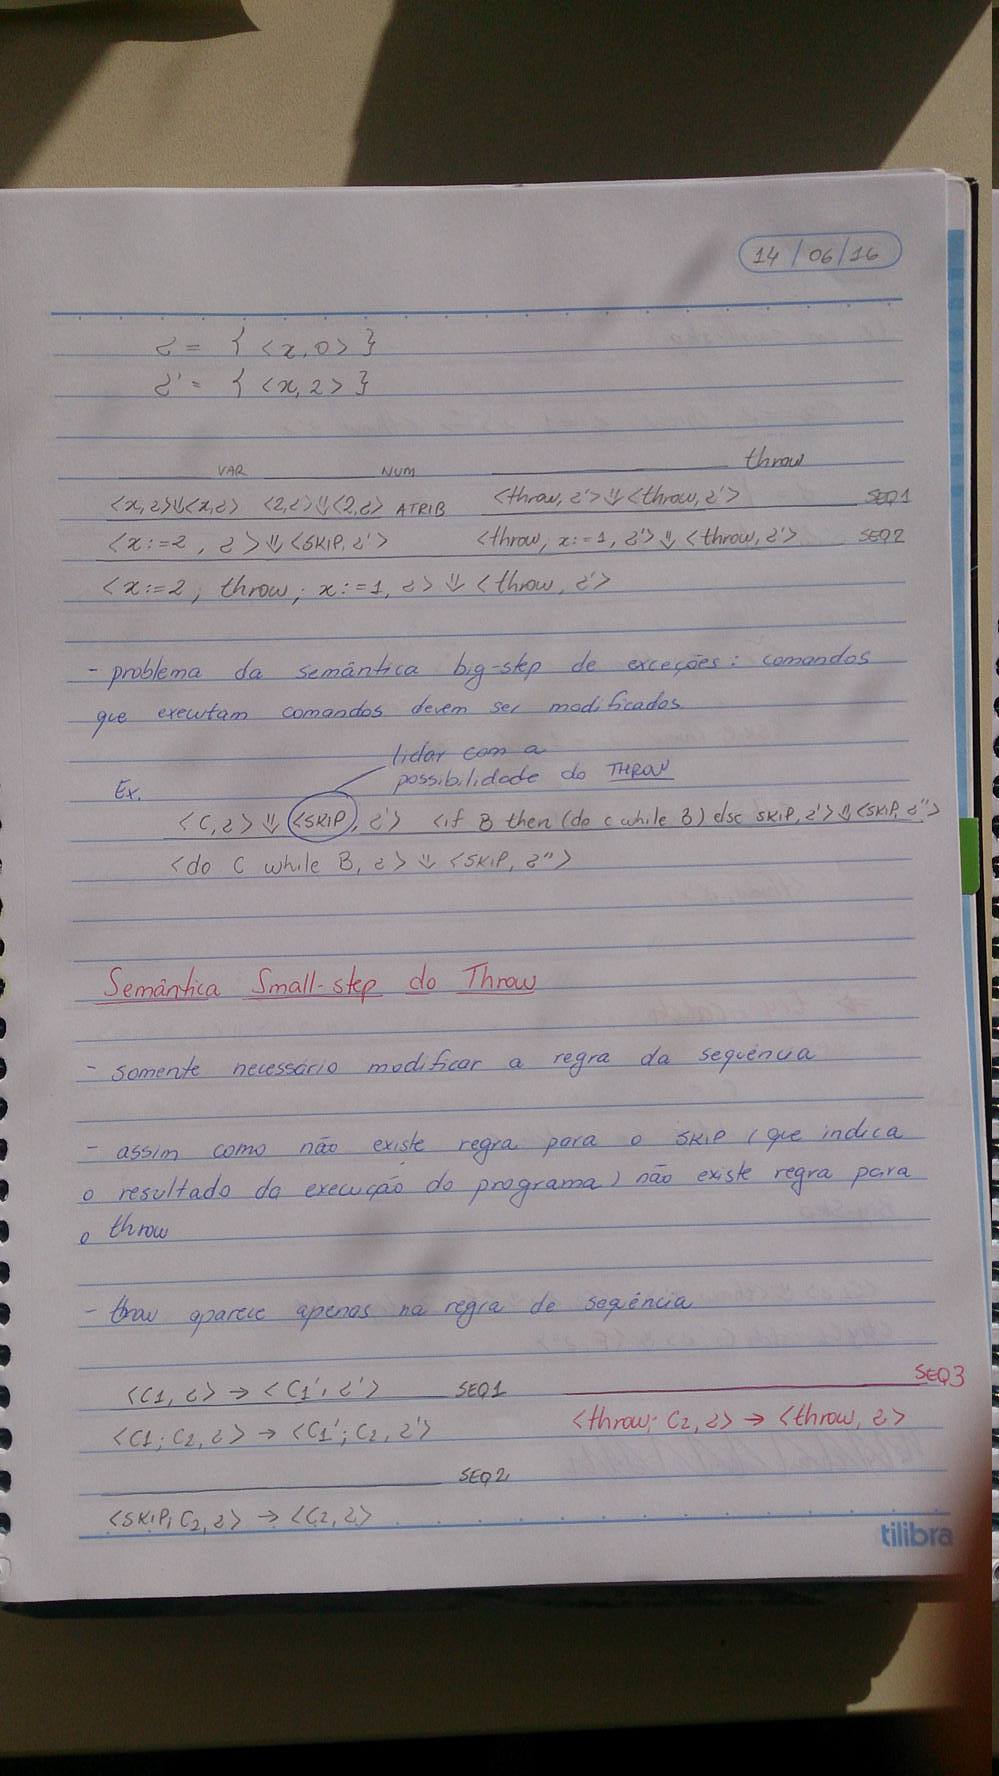 14/06/16
σ = { <x,0> }
σ' = { <x,2> }
VAR NUM throw
<x,σ>⇓<x,σ> <2,σ>⇓<2,σ> ATRIB <throw,σ'>⇓<throw,σ'> SEQ1
<x:=2, σ>⇓<SKIP,σ'> <throw; x:=1,σ'>⇓<throw,σ'> SEQ2
<x:=2; throw; x:=1,σ>⇓<throw,σ'>
- problema da semântica big-step de exceções: comandos
que executam comandos devem ser modificados
lidar com a
possibilidade do THROW
Ex.
<C,σ>⇓<SKIP,σ'> <if B then (do C while B) else SKIP,σ'>⇓<SKIP,σ">
<do C while B,σ>⇓<SKIP,σ">
Semântica Small-step do Throw
- somente necessário modificar a regra da sequência
- assim como não existe regra para o SKIP (que indica
o resultado da execução do programa) não existe regra para
o throw
- throw aparece apenas na regra de sequência
<C1,σ> → <C1',σ'> SEQ1 SEQ3
<C1; C2,σ> → <C1'; C2,σ'> <throw; C2,σ> → <throw,σ>
SEQ2
<SKIP; C2,σ> → <C2,σ>
tilibra